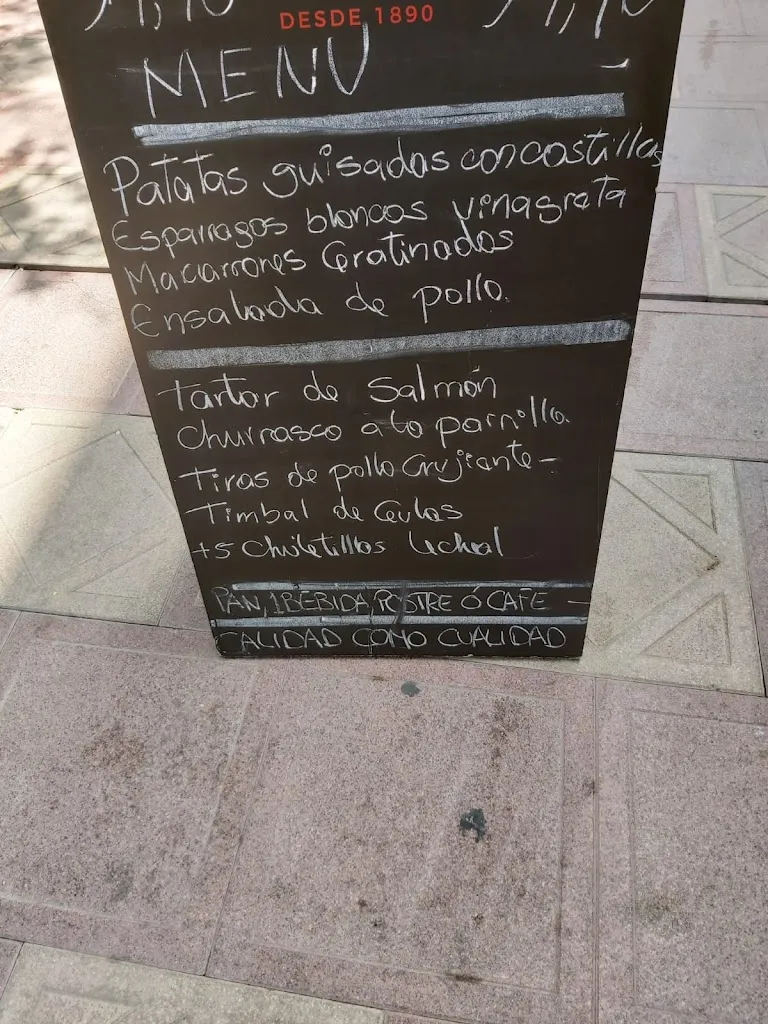 DESDE 1890
MENU
Patatas guisadas con costillas
Esparragos blancos vinagreta
Macarrones Gratinados
Ensalada de pollo.
Tartar de Salmón
Churrasco a la parrilla.
Tiras de pollo Crujiente-
Timbal de Gulas
+5 Chuletillas lechal
PAN, 1 BEBIDA, POSTRE Ó CAFE -
CALIDAD COMO CUALIDAD